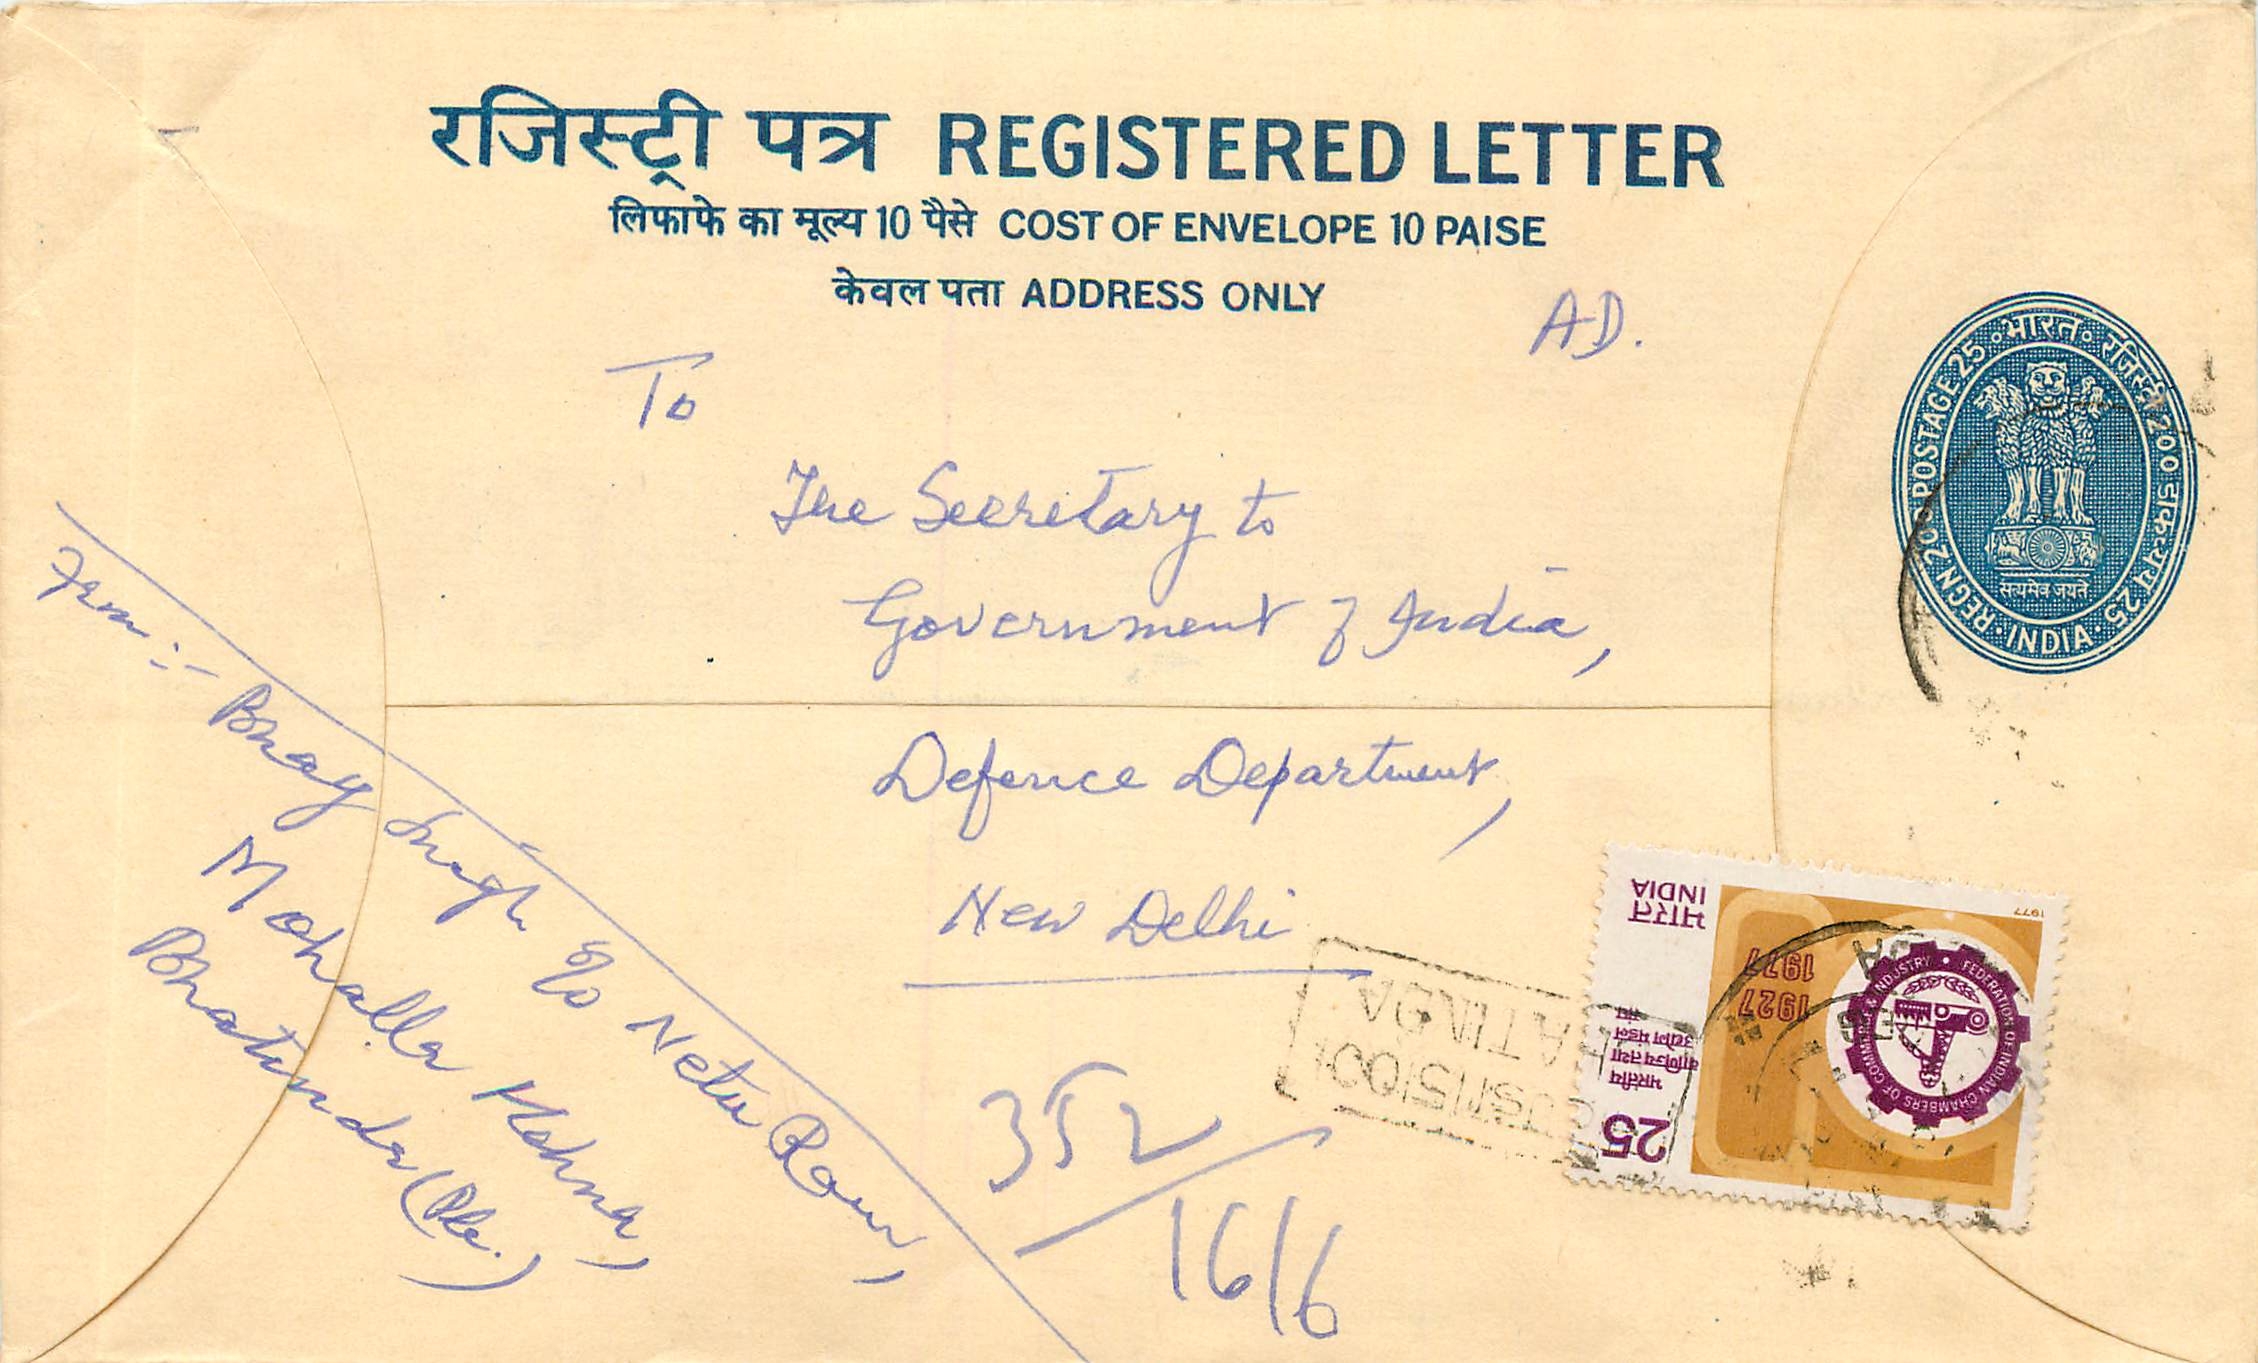 रजिस्ट्री पत्र REGISTERED LETTER
लिफाफे का मूल्य 10 पैसे COST OF ENVELOPE 10 PAISE
केवल पता ADDRESS ONLY
AD.
To
The Secretary to
Government of India,
Defence Department,
New Delhi
From:- Bhag Singh S/o Netu Ram,
Mohalla Mehna,
Bhatinda (Pb.)
352/1616
भारत रजिस्ट्री 200 डाक द्रव्य 25
REGN 200 POSTAGE 25
INDIA
सत्यमेव जयते
भारत
INDIA
1977
1927
1977
FEDERATION OF INDIAN CHAMBERS OF COMMERCE & INDUSTRY
भारतीय
वाणिज्य तथा
उद्योग मंडल
संघ
25